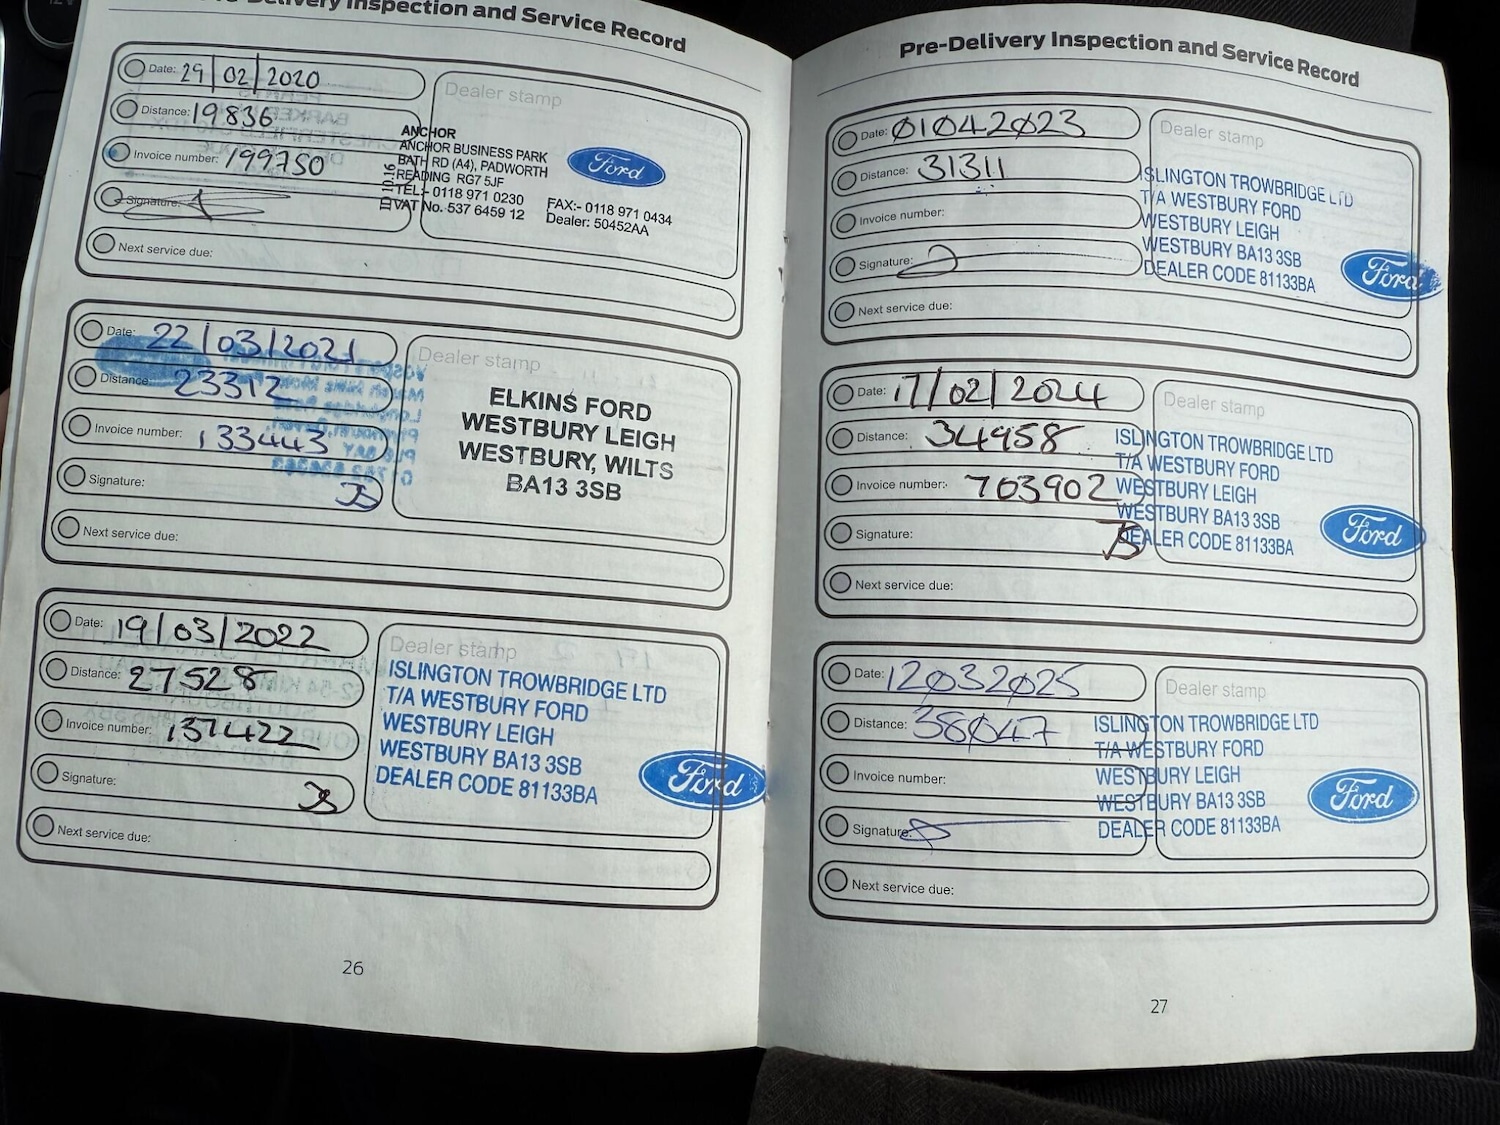 Delivery Inspection and Service Record
Date: 29/02/2020
Distance: 19836
Invoice number: 199750
Signature:
Next service due:
Dealer stamp
ANCHOR
ANCHOR BUSINESS PARK
BATH RD (A4), PADWORTH
READING RG7 5JF
TEL:- 0118 971 0230 FAX:- 0118 971 0434
VAT No. 537 6459 12 Dealer: 50452AA
Ford
Date: 22/03/2021
Distance: 23312
Invoice number: 133443
Signature: JS
Next service due:
Dealer stamp
ELKINS FORD
WESTBURY LEIGH
WESTBURY, WILTS
BA13 3SB
Date: 19/03/2022
Distance: 27528
Invoice number: 137422
Signature: JS
Next service due:
Dealer stamp
ISLINGTON TROWBRIDGE LTD
T/A WESTBURY FORD
WESTBURY LEIGH
WESTBURY BA13 3SB
DEALER CODE 81133BA
Ford
26
Pre-Delivery Inspection and Service Record
Date: 01042023
Distance: 31311
Invoice number:
Signature:
Next service due:
Dealer stamp
ISLINGTON TROWBRIDGE LTD
T/A WESTBURY FORD
WESTBURY LEIGH
WESTBURY BA13 3SB
DEALER CODE 81133BA
Ford
Date: 17/02/2024
Distance: 34958
Invoice number: 703902
Signature: JS
Next service due:
Dealer stamp
ISLINGTON TROWBRIDGE LTD
T/A WESTBURY FORD
WESTBURY LEIGH
WESTBURY BA13 3SB
DEALER CODE 81133BA
Ford
Date: 12032025
Distance: 38047
Invoice number:
Signature:
Next service due:
Dealer stamp
ISLINGTON TROWBRIDGE LTD
T/A WESTBURY FORD
WESTBURY LEIGH
WESTBURY BA13 3SB
DEALER CODE 81133BA
Ford
27